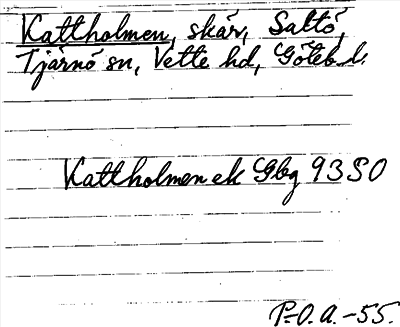 Kattholmen, skär, Saltö,
Tjärnö sn, Vette hd, Göteb. l.
Kattholmen ek Gbg 9350
P.-O. A. -55.